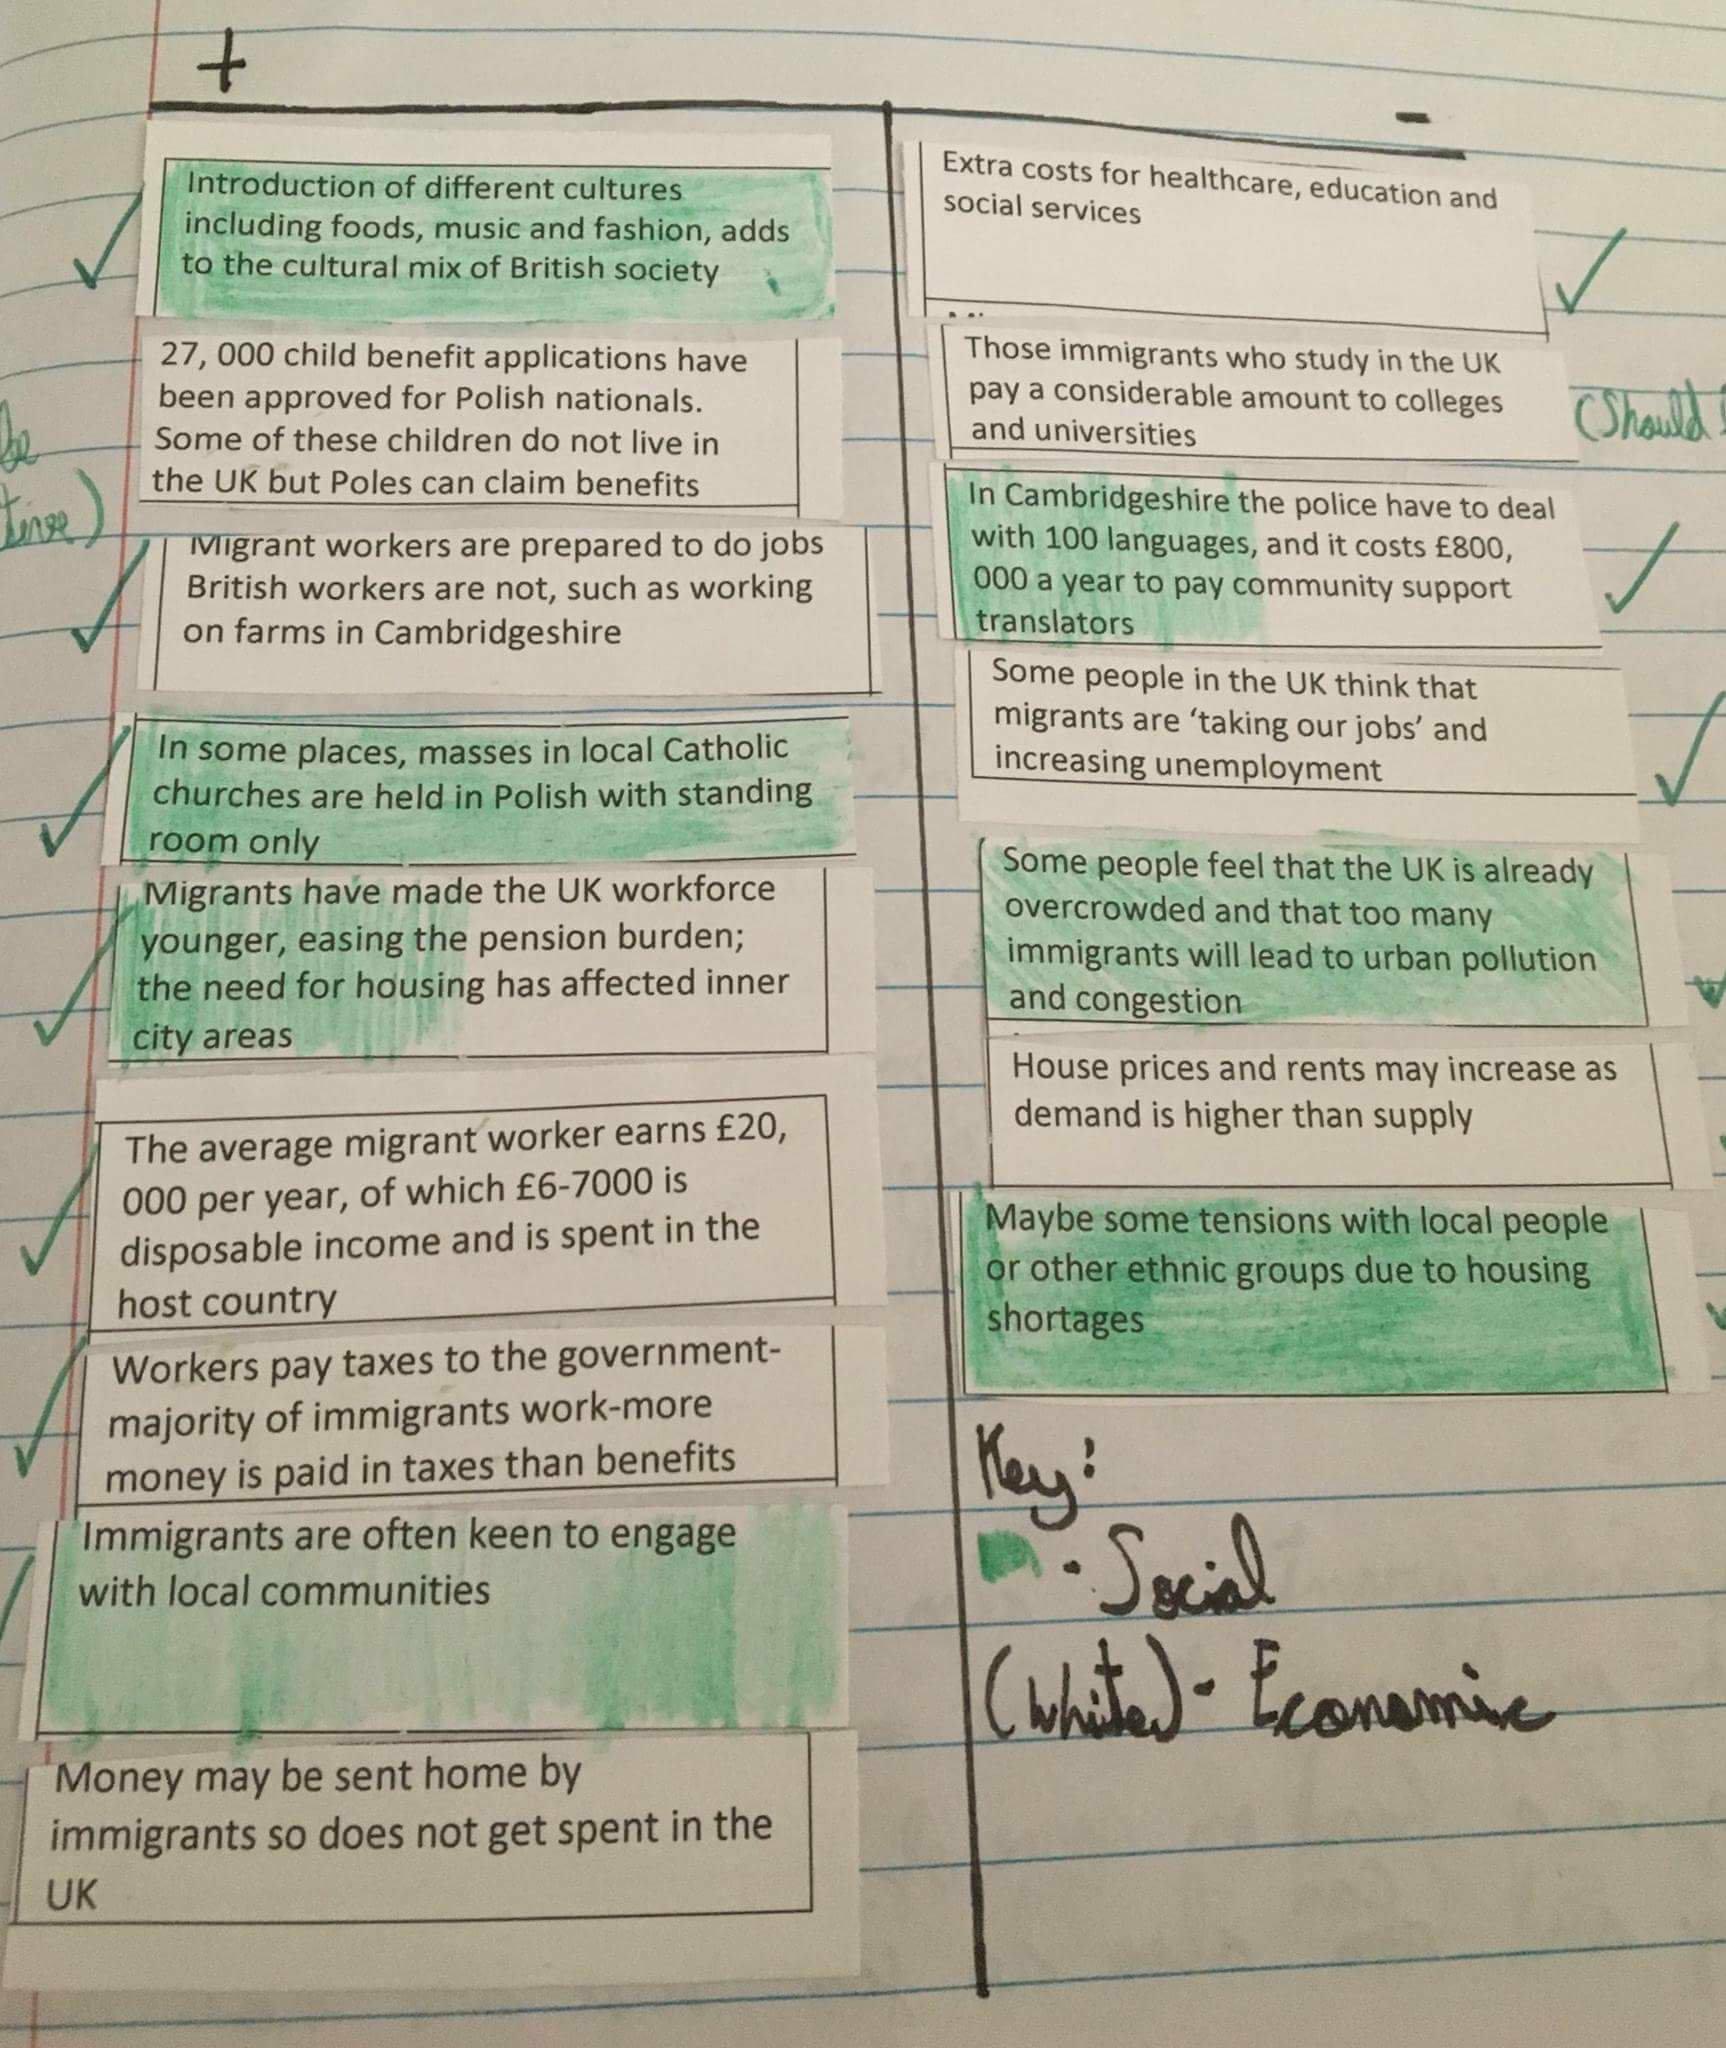 +
Introduction of different cultures
including foods, music and fashion, adds
to the cultural mix of British society
27, 000 child benefit applications have
been approved for Polish nationals.
Some of these children do not live in
the UK but Poles can claim benefits
be
Migrant workers are prepared to do jobs
British workers are not, such as working
on farms in Cambridgeshire
In some places, masses in local Catholic
churches are held in Polish with standing
room only
Migrants have made the UK workforce
younger, easing the pension burden;
the need for housing has affected inner
city areas
The average migrant worker earns £20,
000 per year, of which £6-7000 is
disposable income and is spent in the
host country
Workers pay taxes to the government-
majority of immigrants work-more
money is paid in taxes than benefits
Immigrants are often keen to engage
with local communities
Money may be sent home by
immigrants so does not get spent in the
UK
-
Extra costs for healthcare, education and
social services
Those immigrants who study in the UK
pay a considerable amount to colleges
and universities
(Should
In Cambridgeshire the police have to deal
with 100 languages, and it costs £800,
000 a year to pay community support
translators
Some people in the UK think that
migrants are ‘taking our jobs’ and
increasing unemployment
Some people feel that the UK is already
overcrowded and that too many
immigrants will lead to urban pollution
and congestion
House prices and rents may increase as
demand is higher than supply
Maybe some tensions with local people
or other ethnic groups due to housing
shortages
Key:
- Social
(White) - Economic